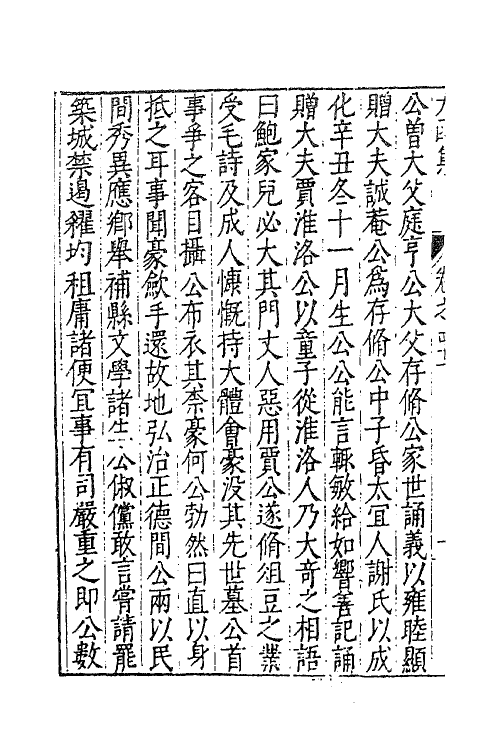 公曾大父庭亨公大父存脩公家世誦義以雍睦顯
贈大夫誠菴公爲存脩公中子昏太冝人謝氏以成
化辛丑冬十一月生公公能言輙敏給如響善記誦
贈大夫賈淮洛公以童子從淮洛人乃大奇之相語
曰鮑家兒必大其門丈人惡用賈公遂脩俎豆之業
受毛詩及成人慷慨持大體會豪没其先世墓公首
事爭之客目攝公布衣其柰豪何公勃然曰直以身
抵之耳事聞豪歛手還故地弘治正德間公兩以民
間秀異應鄉舉補縣文學諸生公俶儻敢言嘗請罷
築城禁邊糴均租庸諸便冝事有司嚴重之即公數